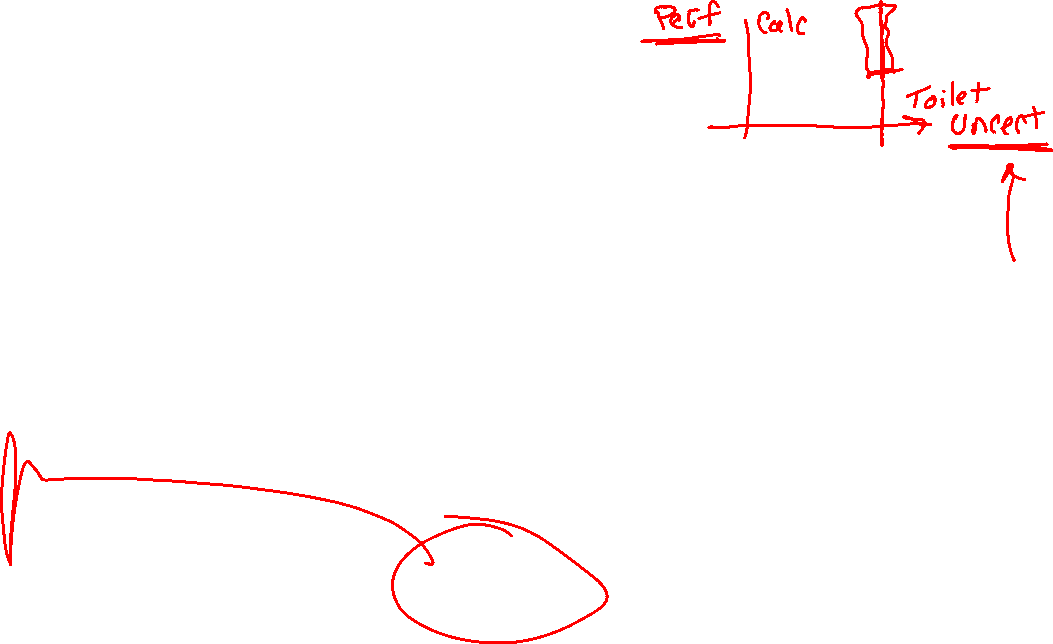 Perf
Calc
Toilet
Uncert